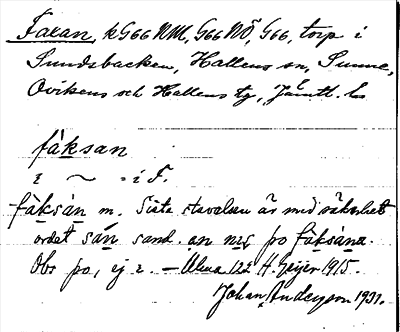 Faxan, k G66 NM, G66 NÖ, G66, torp i
Sundsbacken, Hallens sn, Sunne,
Ovikens och Hallens tg, Jämtl. l.
fàksan
i ~ - i F.
fàksàn m. Sista stavelsen är med säkerhet
ordet sàn sand. an nẹs po fàksàna.
Obs po, ej i. – Alma 122 H. Geijer 1915.
Johan Anderson 1931.